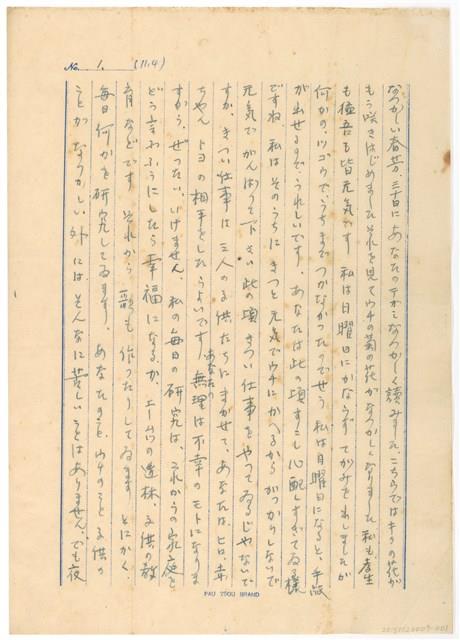 No. 1. (11.4)
なつかしい春芳、三日に あなたのテガミなつかしく読みました、こちらではキクの花が
もう咲きはじめましたそれを見てウチの菊の花がなつかしくなりました 私も孝生
も極吾も皆元気です 私は日曜日にかならず てがみを出しましたが
何かのツゴウで、うちまでつかなかったのでせう 私は日曜日になると、手紙
が出せるので、うれしいです。あなたは此の頃すこし心配しすぎてゐる様
ですね、私はそのうちに きっと元気でウチにかへるから がっかりしないで
元気で がんばって下さい 此の頃 きつい仕事をやってゐるじやないで
すか、きつい仕事は 三人の子供たちにまかせて、あなたは、ヒロ、
ちやん トヨの相手をしたらよいです 無理は不幸のモトになりま
すから、ぜったい、いけません、私の毎日の研究は、これからの家庭を
どう言ふふうにしたら 幸福になるか、 山の造林、子供の教
育などです それから 歌も 作ったりしてゐます とにかく、
毎日 何かを研究してゐます。 あなたのこと、ウチのこと 子供の
ことが なつかしい外には、そんなに苦しいことはありません、でも夜
PAU TSOU BRAND